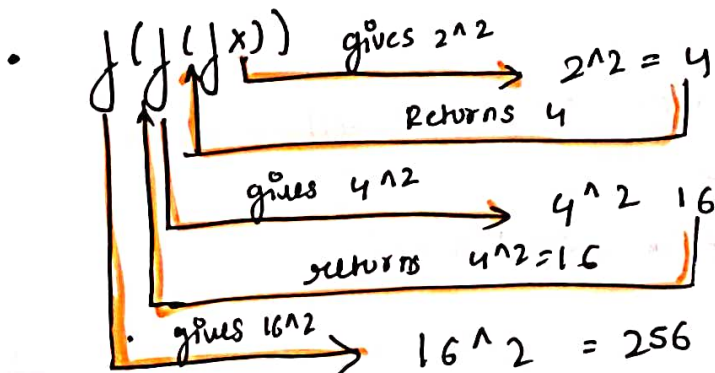 • f(f(fx)) gives 2^2 2^2 = 4
Returns 4
gives 4^2 4^2 16
returns 4^2=16
gives 16^2 16^2 = 256